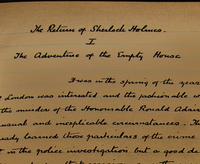 The Return of Sherlock Holmes.
I
The Adventure of the Empty House
It was in the spring of the year
London was interested, and the fashionable
the murder of the Honourable Ronald Adair
unusual and inexplicable circumstances. The
already learned those particulars of the crime
in the police investigation, but a good deal